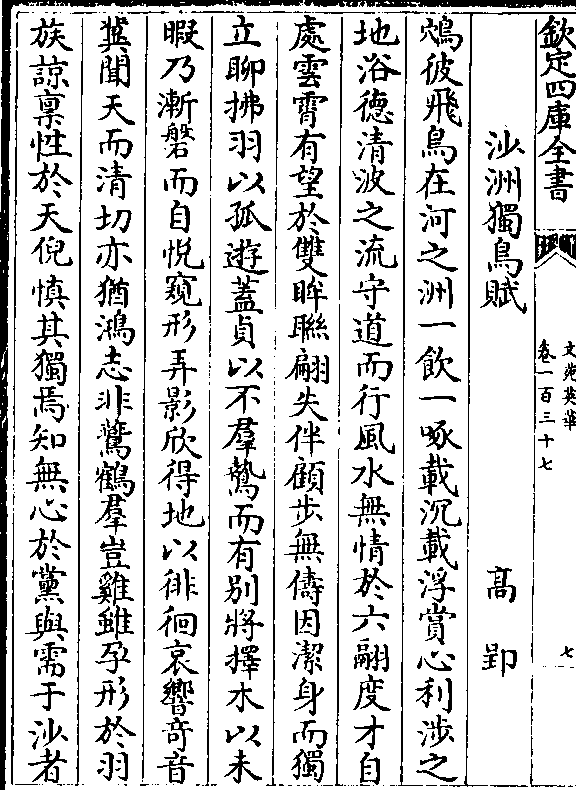 欽定四庫全書
文苑英華
卷一百三十七
七
沙洲獨鳥賦
高郢
鴥彼飛鳥在河之洲一飲一啄載沉載浮賞心利涉之
地浴德清波之流守道而行風水無情於六翮度才自
處雲霄有望於雙眸聯翩失伴顧步無儔因潔身而獨
立聊拂羽以孤遊蓋貞以不羣鷙而有别將擇木以未
暇乃漸磐而自悦窺形弄影欣得地以徘徊哀響竒音
冀聞天而清切亦猶鴻志非鷖鶴羣豈雞雖孕形於羽
族諒禀性於天倪慎其獨焉知無心於黨與需于沙者